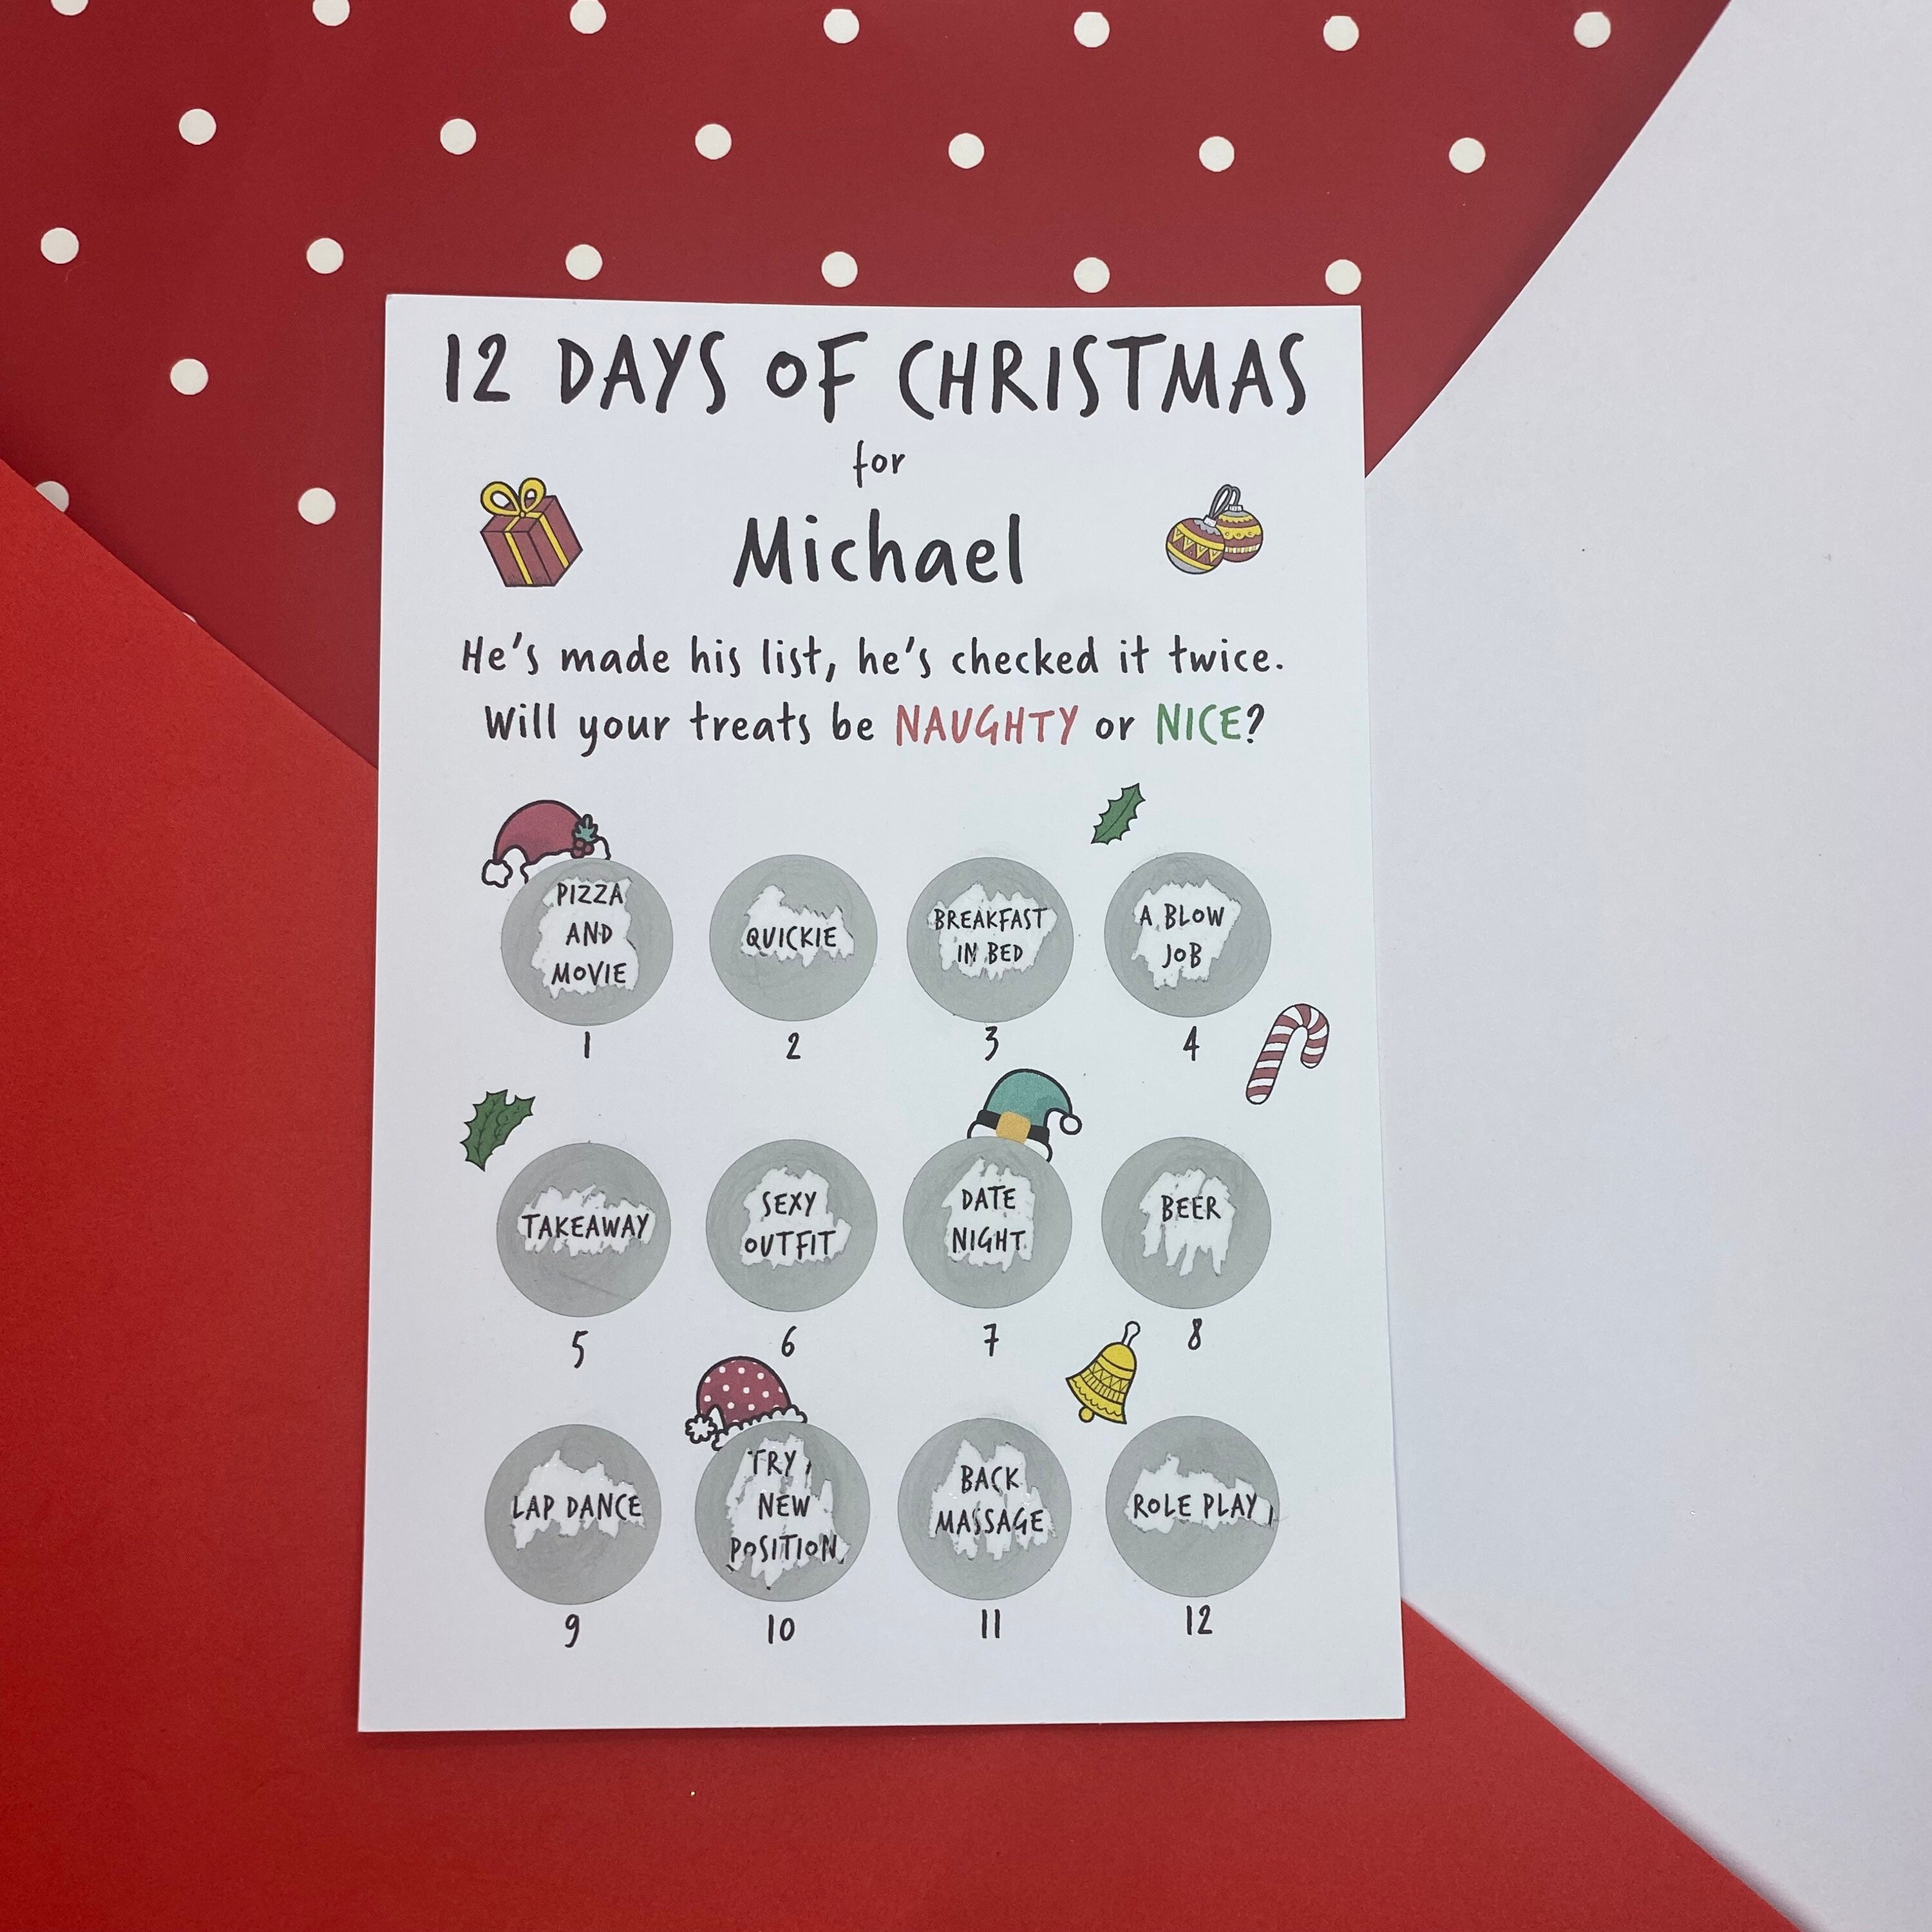 12 DAYS OF CHRISTMAS
for
Michael
He's made his list, he's checked it twice.
Will your treats be NAUGHTY or NICE?
PIZZA
AND
MOVIE
1
QUICKIE
2
BREAKFAST
IN BED
3
A BLOW
JOB
4
TAKEAWAY
5
SEXY
OUTFIT
6
DATE
NIGHT
7
BEER
8
LAP DANCE
9
TRY
NEW
POSITION
10
BACK
MASSAGE
11
ROLE PLAY
12